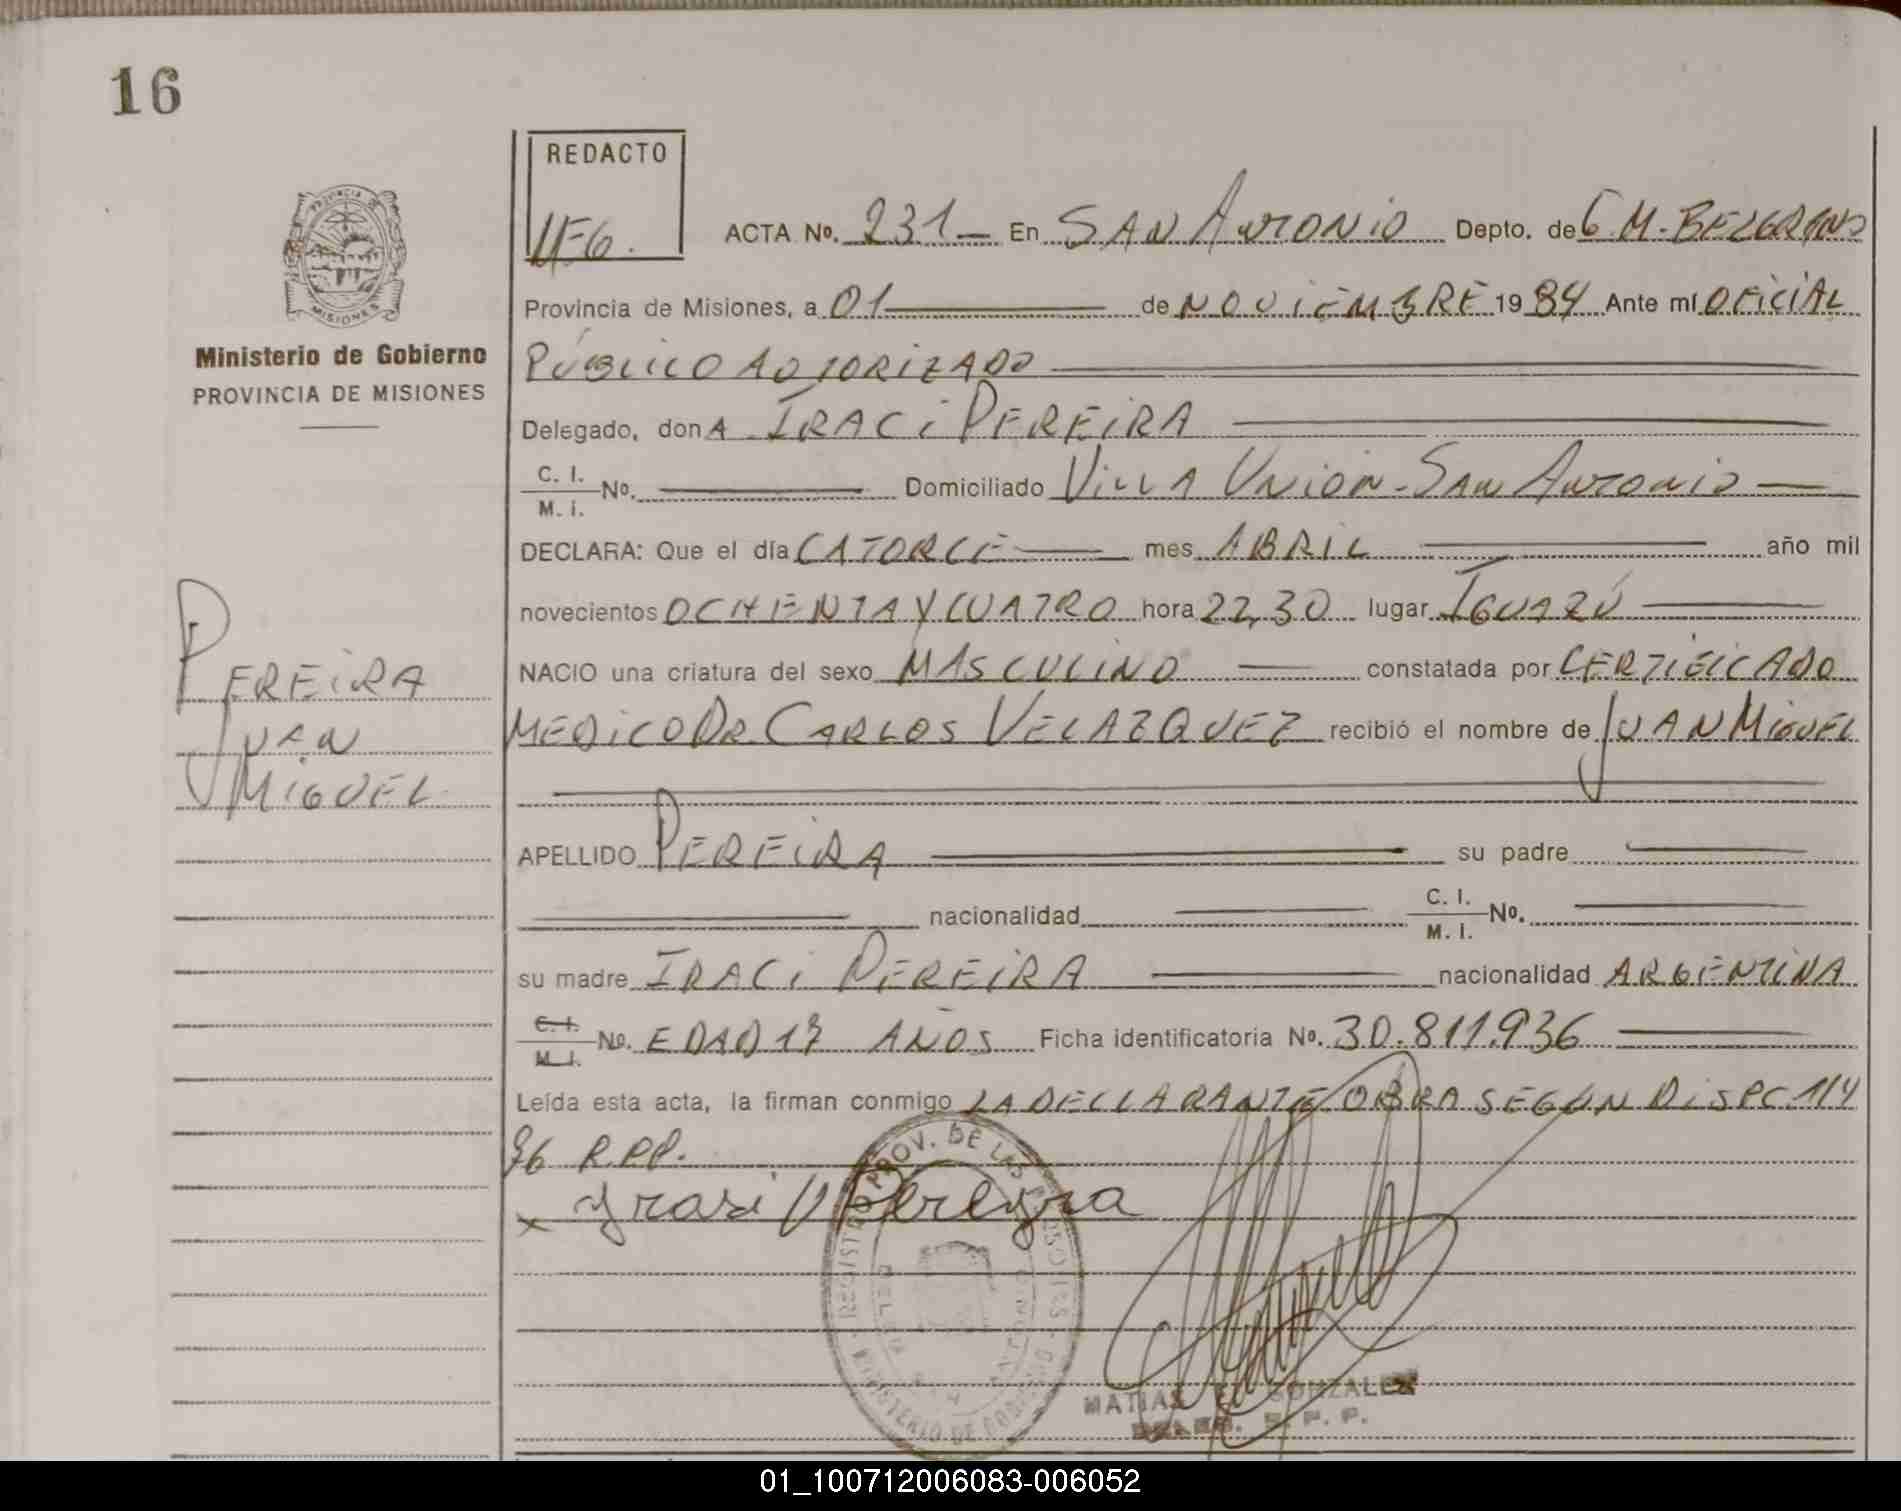 16
REDACTO
PROVINCIA DE
MISIONES
Ministerio de Gobierno
PROVINCIA DE MISIONES
ACTA No. 231 En SAN ANTONIO Depto. de G. M. BELGRANO
Provincia de Misiones, a 01 de NOVIEMBRE 1984 Ante mí OFICIAL
PÚBLICO AUTORIZADO
Delegado, don A IRACI PEREIRA
C. I. M. i. No. Domiciliado VILLA UNIÓN - SAN ANTONIO
DECLARA: Que el día CATORCE mes ABRIL año mil
novecientos OCHENTA Y CUATRO hora 22,30 lugar IGUAZÚ
NACIO una criatura del sexo MASCULINO constatada por CERTIFICADO
MEDICO DR. CARLOS VELAZQUEZ recibió el nombre de JUAN MIGUEL
PEREIRA
JUAN
MIGUEL
APELLIDO PEREIRA su padre
nacionalidad C. I. M. I. No.
su madre IRACI PEREIRA nacionalidad ARGENTINA
C. I. M. I. No. EDAD 17 AÑOS Ficha identificatoria No. 30.811.936
Leída esta acta, la firman conmigo LA DECLARANTE OBRA SEGÚN DISPC. 114
96 R.PP.
x Irasi Pereyra
REGISTRO PROV. DE LAS PERSONAS - MINISTERIO DE GOBIERNO
MATIAS E. GONZALEZ
DELEG. R. P. P.
01_100712006083-006052